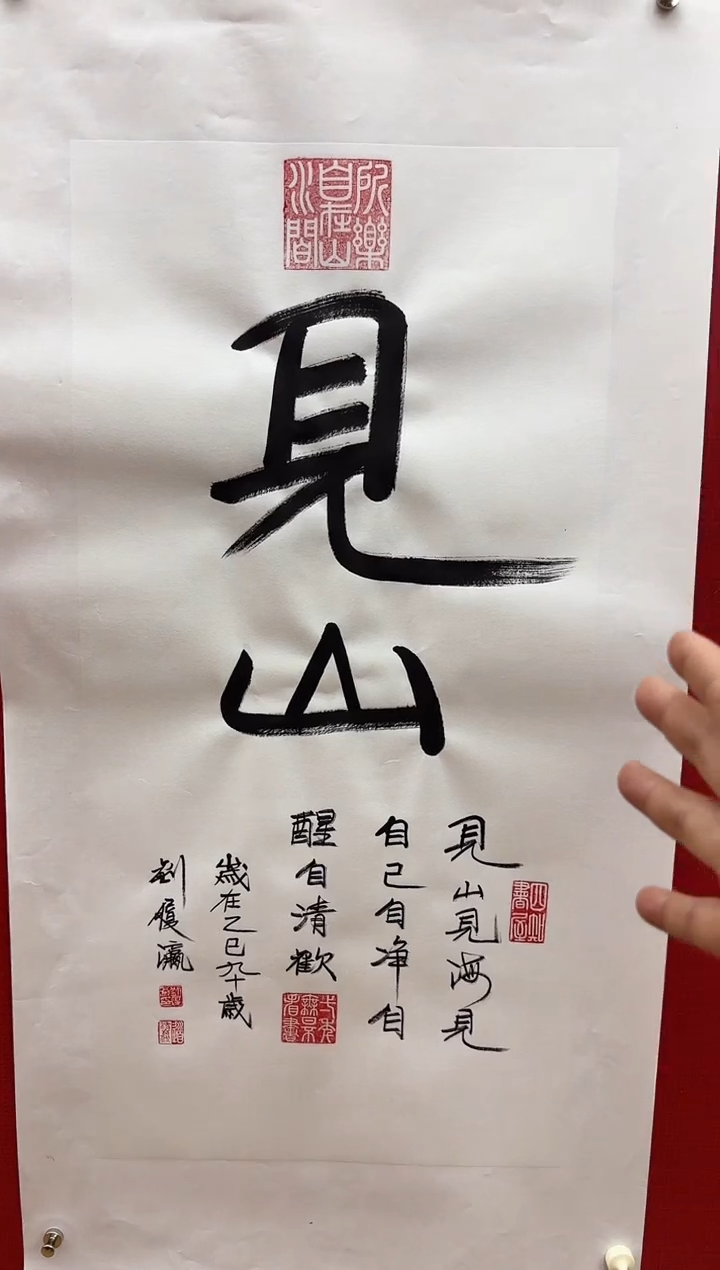 所樂
自在山
水間
見山
見山見海見
自己自净自
醒自清歡
歲在乙巳九十歲
劉
瀛